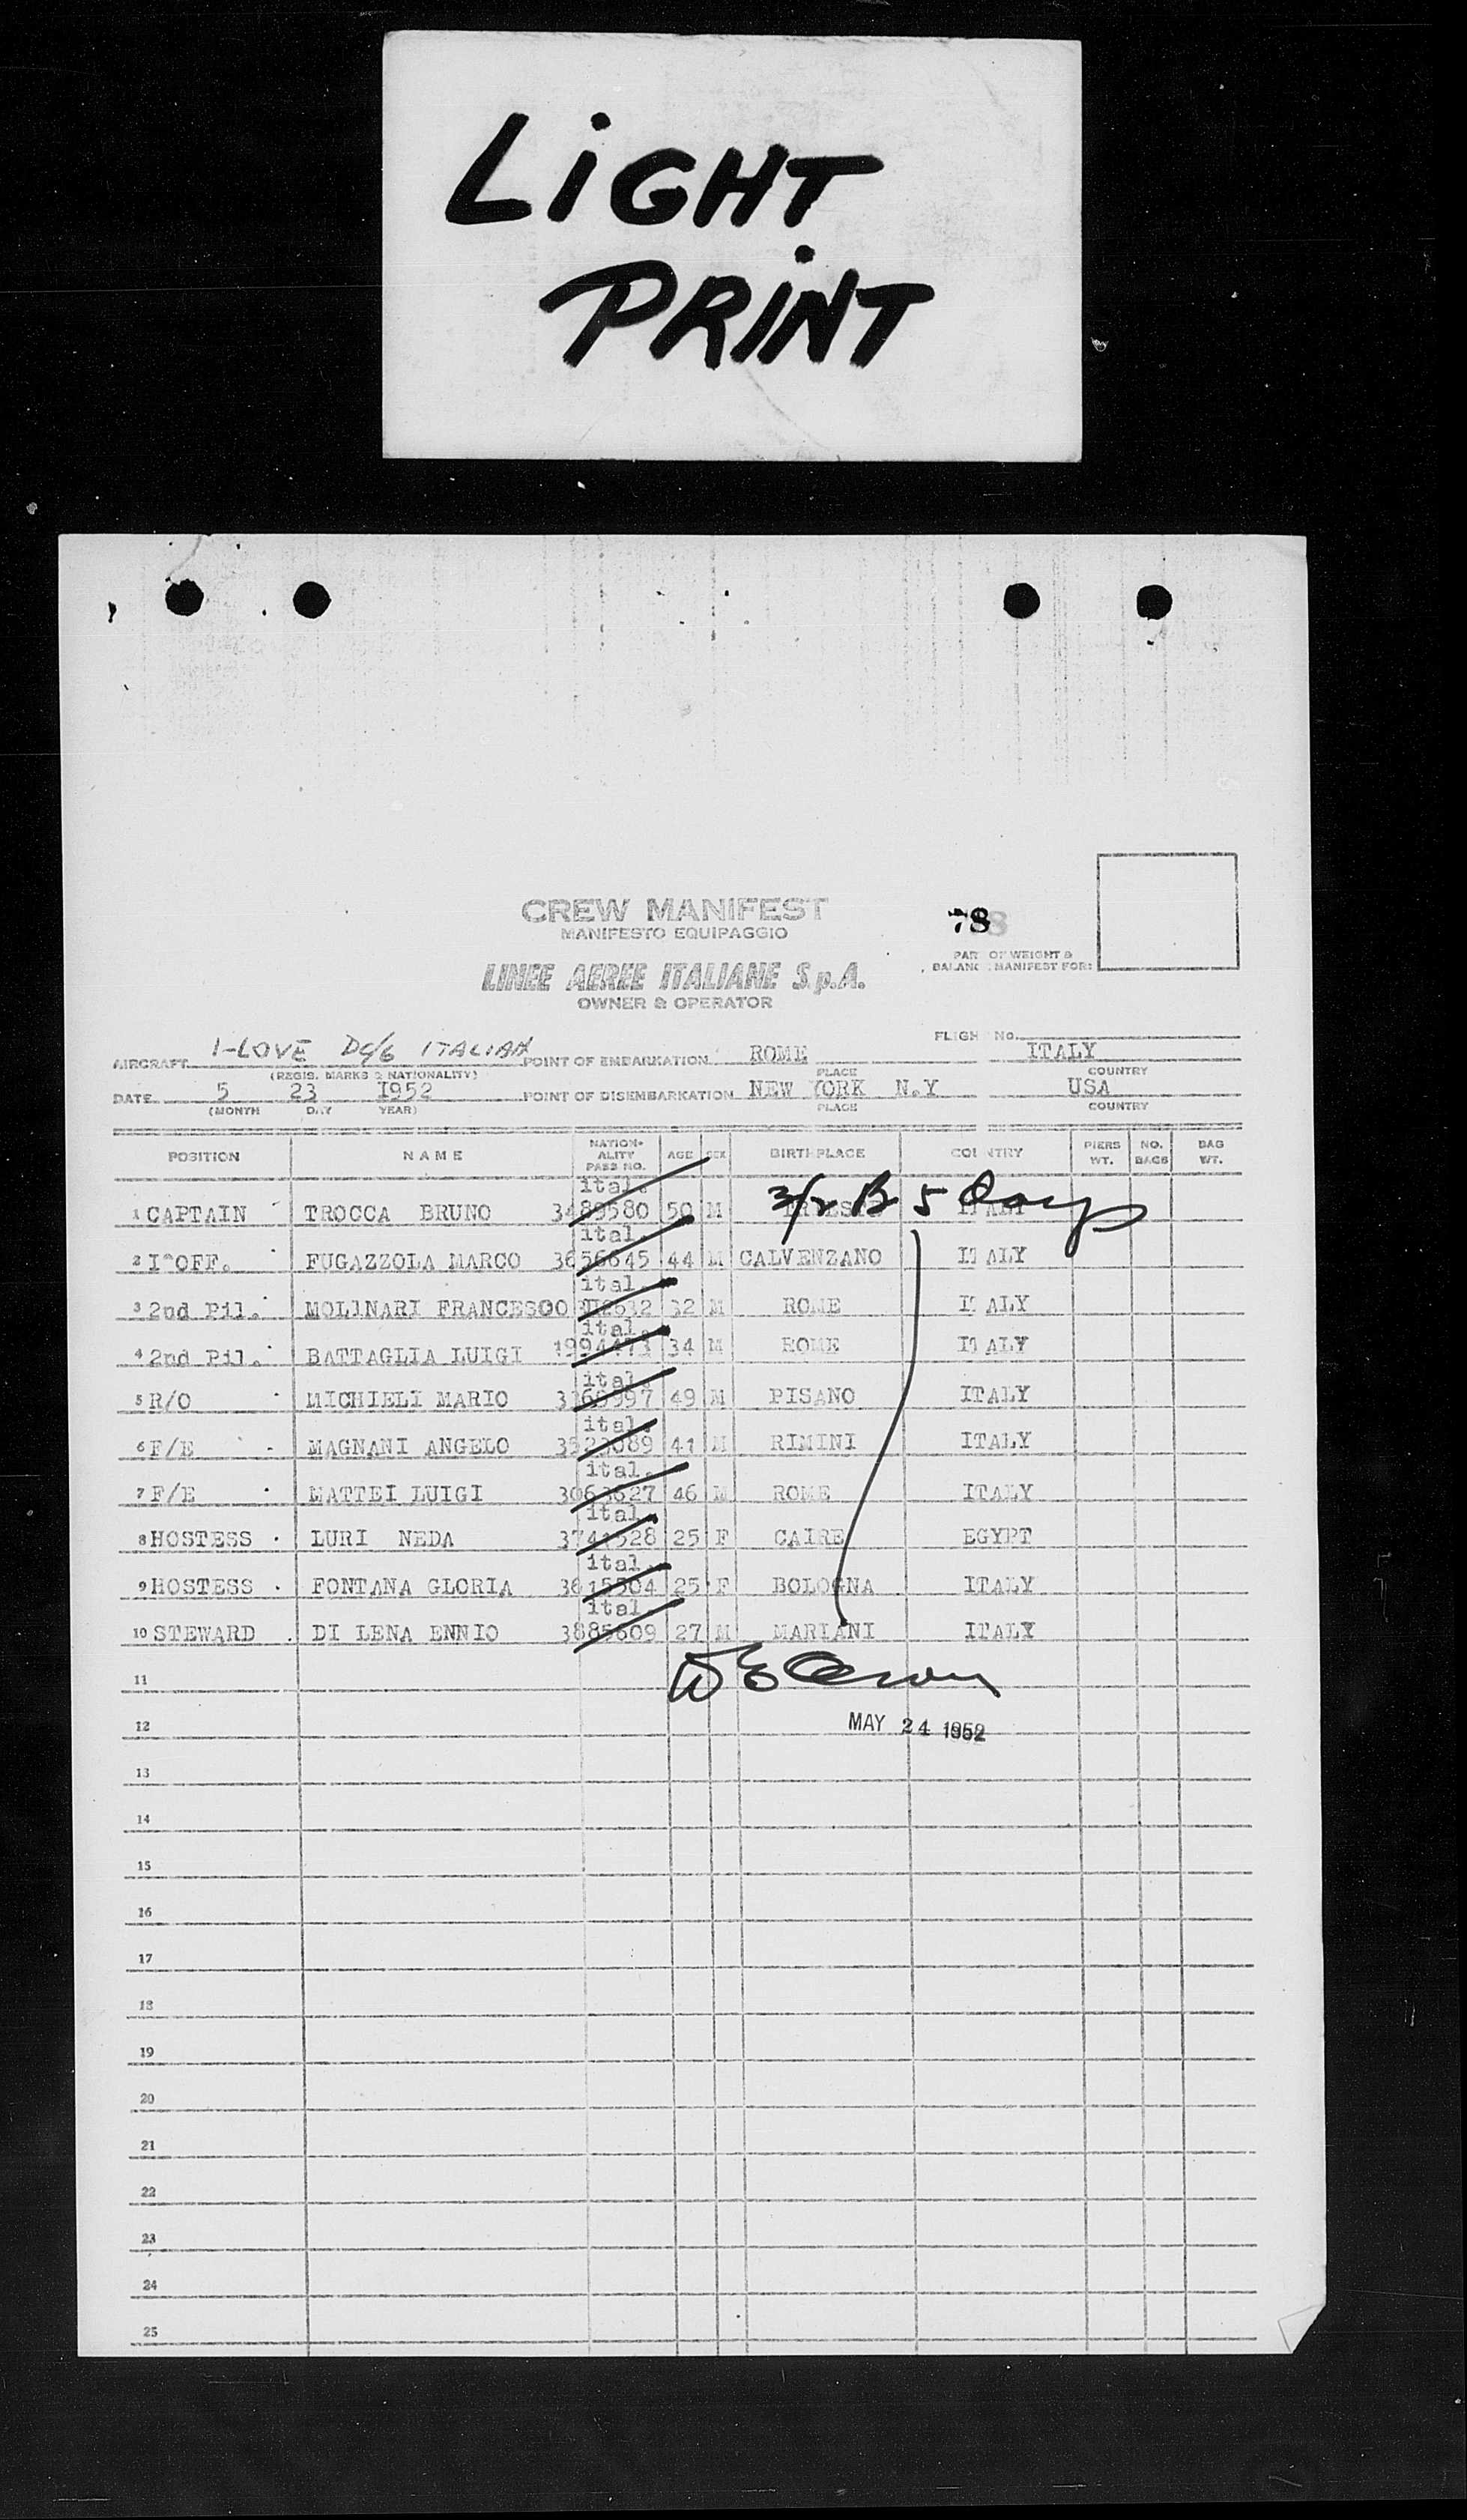 LiGHT
PRiNT
CREW MANIFEST
MANIFESTO EQUIPAGGIO
78
PAR OF WEIGHT &
BALANC MANIFEST FOR:
LINEE AEREE ITALIANE S.p.A.
OWNER & OPERATOR
FLIGH No.
AIRCRAFT I-LOVE DC/6 ITALIAN POINT OF EMBARKATION ROME ITALY
(REGIS. MARKS & NATIONALITY) PLACE COUNTRY
DATE 5 23 1952 POINT OF DISEMBARKATION NEW YORK N.Y USA
(MONTH DAY YEAR) PLACE COUNTRY
POSITION NAME NATION-ALITY PASS NO. AGE SEX BIRTHPLACE COUNTRY PIERS WT. NO. BAGS BAG WT.
1 CAPTAIN TROCCA BRUNO ital. 3489580 50 M ITALY
5 Days
2 I°OFF. FUGAZZOLA MARCO ital. 3656645 44 M CALVENZANO ITALY
3 2nd Pil. MOLINARI FRANCESCO ital. 32 M ROME ITALY
4 2nd Pil. BATTAGLIA LUIGI ital. 1994473 34 M ROME ITALY
5 R/O MICHIELI MARIO ital. 49 M PISANO ITALY
6 F/E MAGNANI ANGELO ital. 41 M RIMINI ITALY
7 F/E MATTEI LUIGI ital. 46 M ROME ITALY
8 HOSTESS LURI NEDA ital. 3741528 25 F CAIRE EGYPT
9 HOSTESS FONTANA GLORIA ital. 3615504 25 F BOLOGNA ITALY
10 STEWARD DI LENA ENNIO ital 3885609 27 M MARIANI ITALY
11
12 MAY 24 1952
13
14
15
16
17
18
19
20
21
22
23
24
25